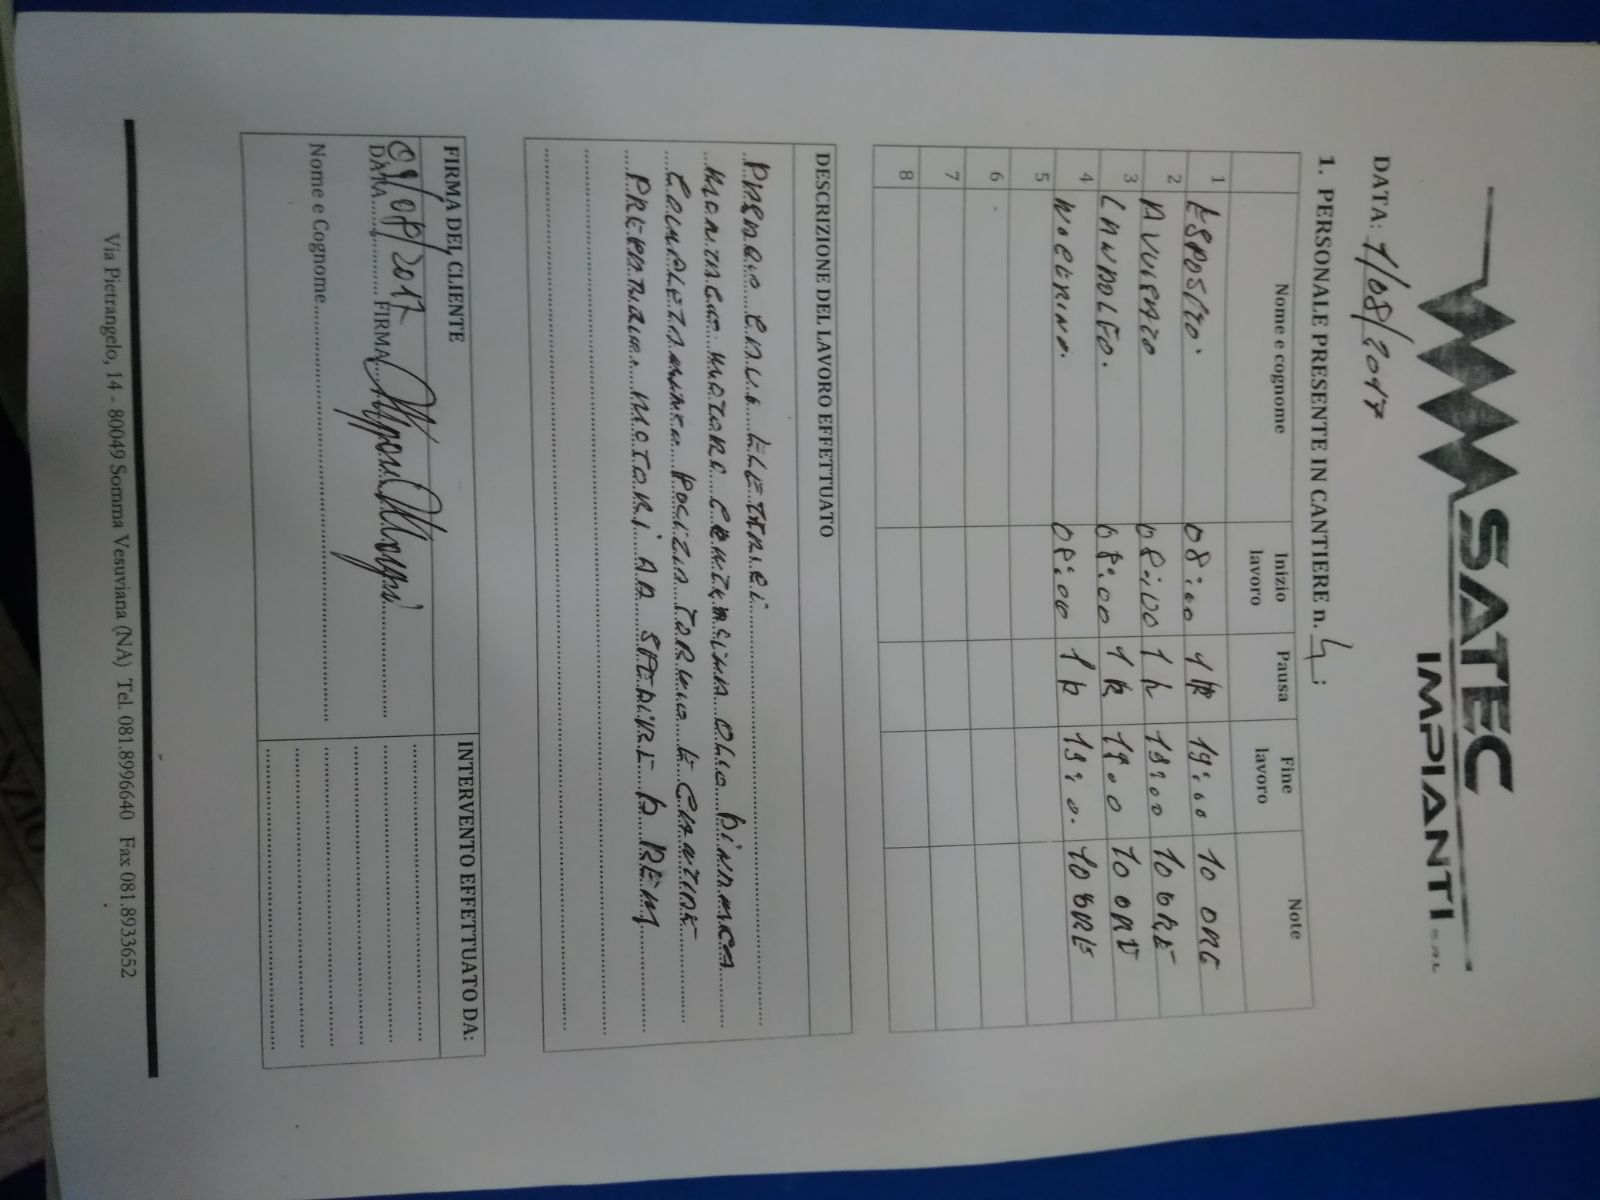 SATEC
IMPIANTI S.R.L.
DATA: 1/08/2017
1. PERSONALE PRESENTE IN CANTIERE n. 4 ;
Nome e cognome Inizio lavoro Pausa Fine lavoro Note
1 ESPOSITO. 08:00 1h 19:00 10 ORE
2 08:00 1h 19:00 10 ORE
3 LANDOLFO. 08:00 1h 19:00 10 ORE
4 NOCERINO. 08:00 1h 19:00 10 ORE
5
6
7
8
DESCRIZIONE DEL LAVORO EFFETTUATO
CAVI ELETTRICI
MONTAGGIO MOTORE OLIO DINAMICA
COMPLETAMENTO PULIZIA TORNIO E
MOTORI DA SPEDIRE A REM
FIRMA DEL CLIENTE INTERVENTO EFFETTUATO DA:
DATA 01/08/2017 FIRMA
Nome e Cognome
Via Pietrangelo, 14 - 80049 Somma Vesuviana (NA) Tel. 081.8996640 Fax 081.8933652